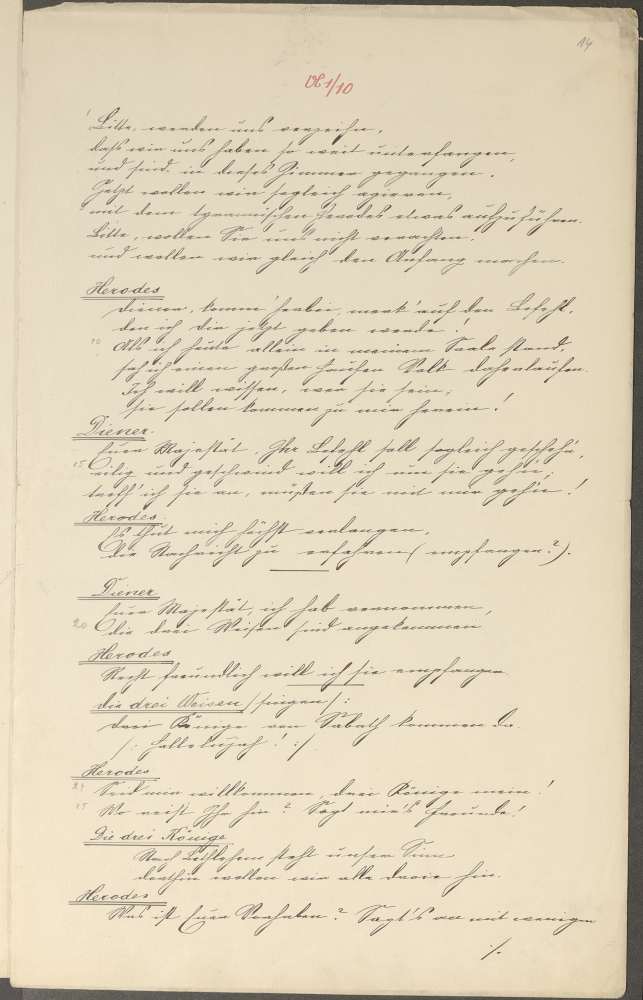 14
VI 1/10
Bitte, werden uns verzeihn,
daß wir uns haben so weit unterfangen,
und sind in dieses Zimmer gegangen.
Jetzt wollen wir sogleich agieren,
mit dem tyrannischen Herodes etwas aufzuführen.
Bitte, wollen Sie uns nicht verachten,
und wollen wir gleich den Anfang machen.
Herodes
Diener, komm' herbei, merk' auf den Befehl,
den ich dir jetzt geben werde!
10 Als ich heute allein in meinem Saale stand
sah ich einen großen Haufen Volk daherlaufen.
Ich will wissen, wer sie sein,
sie sollen kommen zu mir herein!
Diener.
Eure Majestät, Ihr Befehl soll sogleich gescheh'n,
15 eilig und geschwind will ich um sie geh'n,
treff' ich sie an, müßen sie mit mir geh'n!
Herodes.
Es thut mich höchst verlangen,
die Nachricht zu erfahren (empfangen?).
Diener
Eure Majestät, ich hab vernommen,
20 die drei Weisen sind angekommen
Herodes
Recht freundlich will ich sie empfangen
die drei Weisen (singen):
Drei Könige von Sabath kommen da
/: Hallelujah! :/
Herodes
24 Seid mir willkommen, drei Könige mein!
25 Wo reist Ihr hin? Sagt mir's Freunde!
Die drei Könige
Nach Bethlehem steht unser Sinn
dorthin wollen wir alle dreie hin.
Herodes
Was ist Euer Vorhaben? Sagt's an mit wenigen
./.